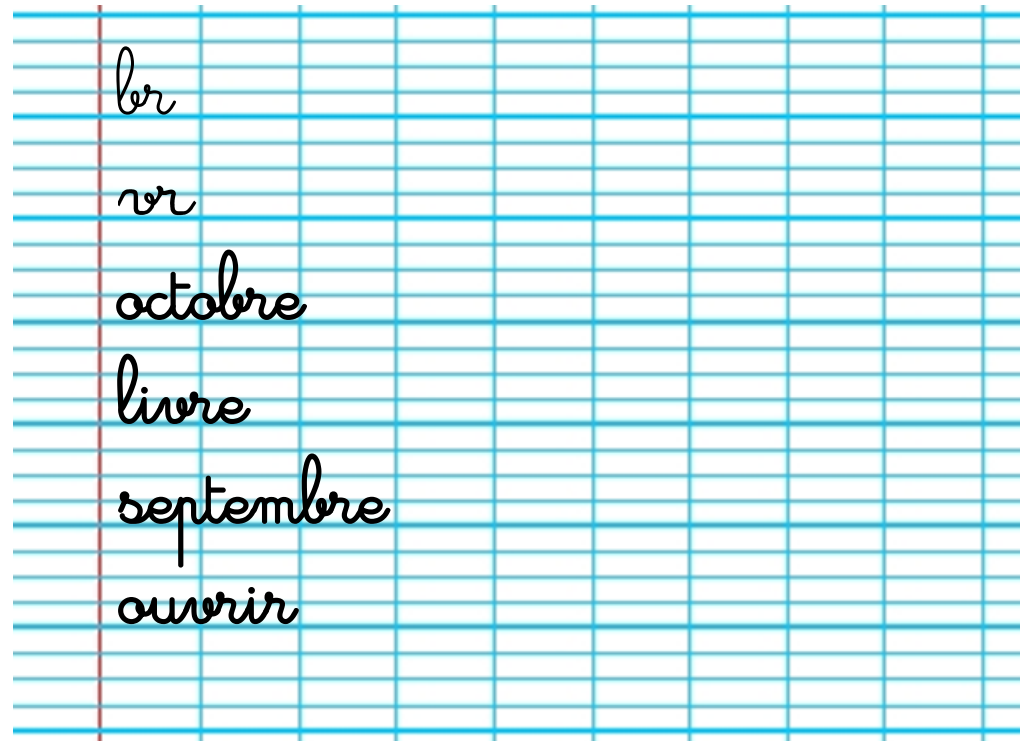 br
vr
octobre
livre
septembre
ouvrir